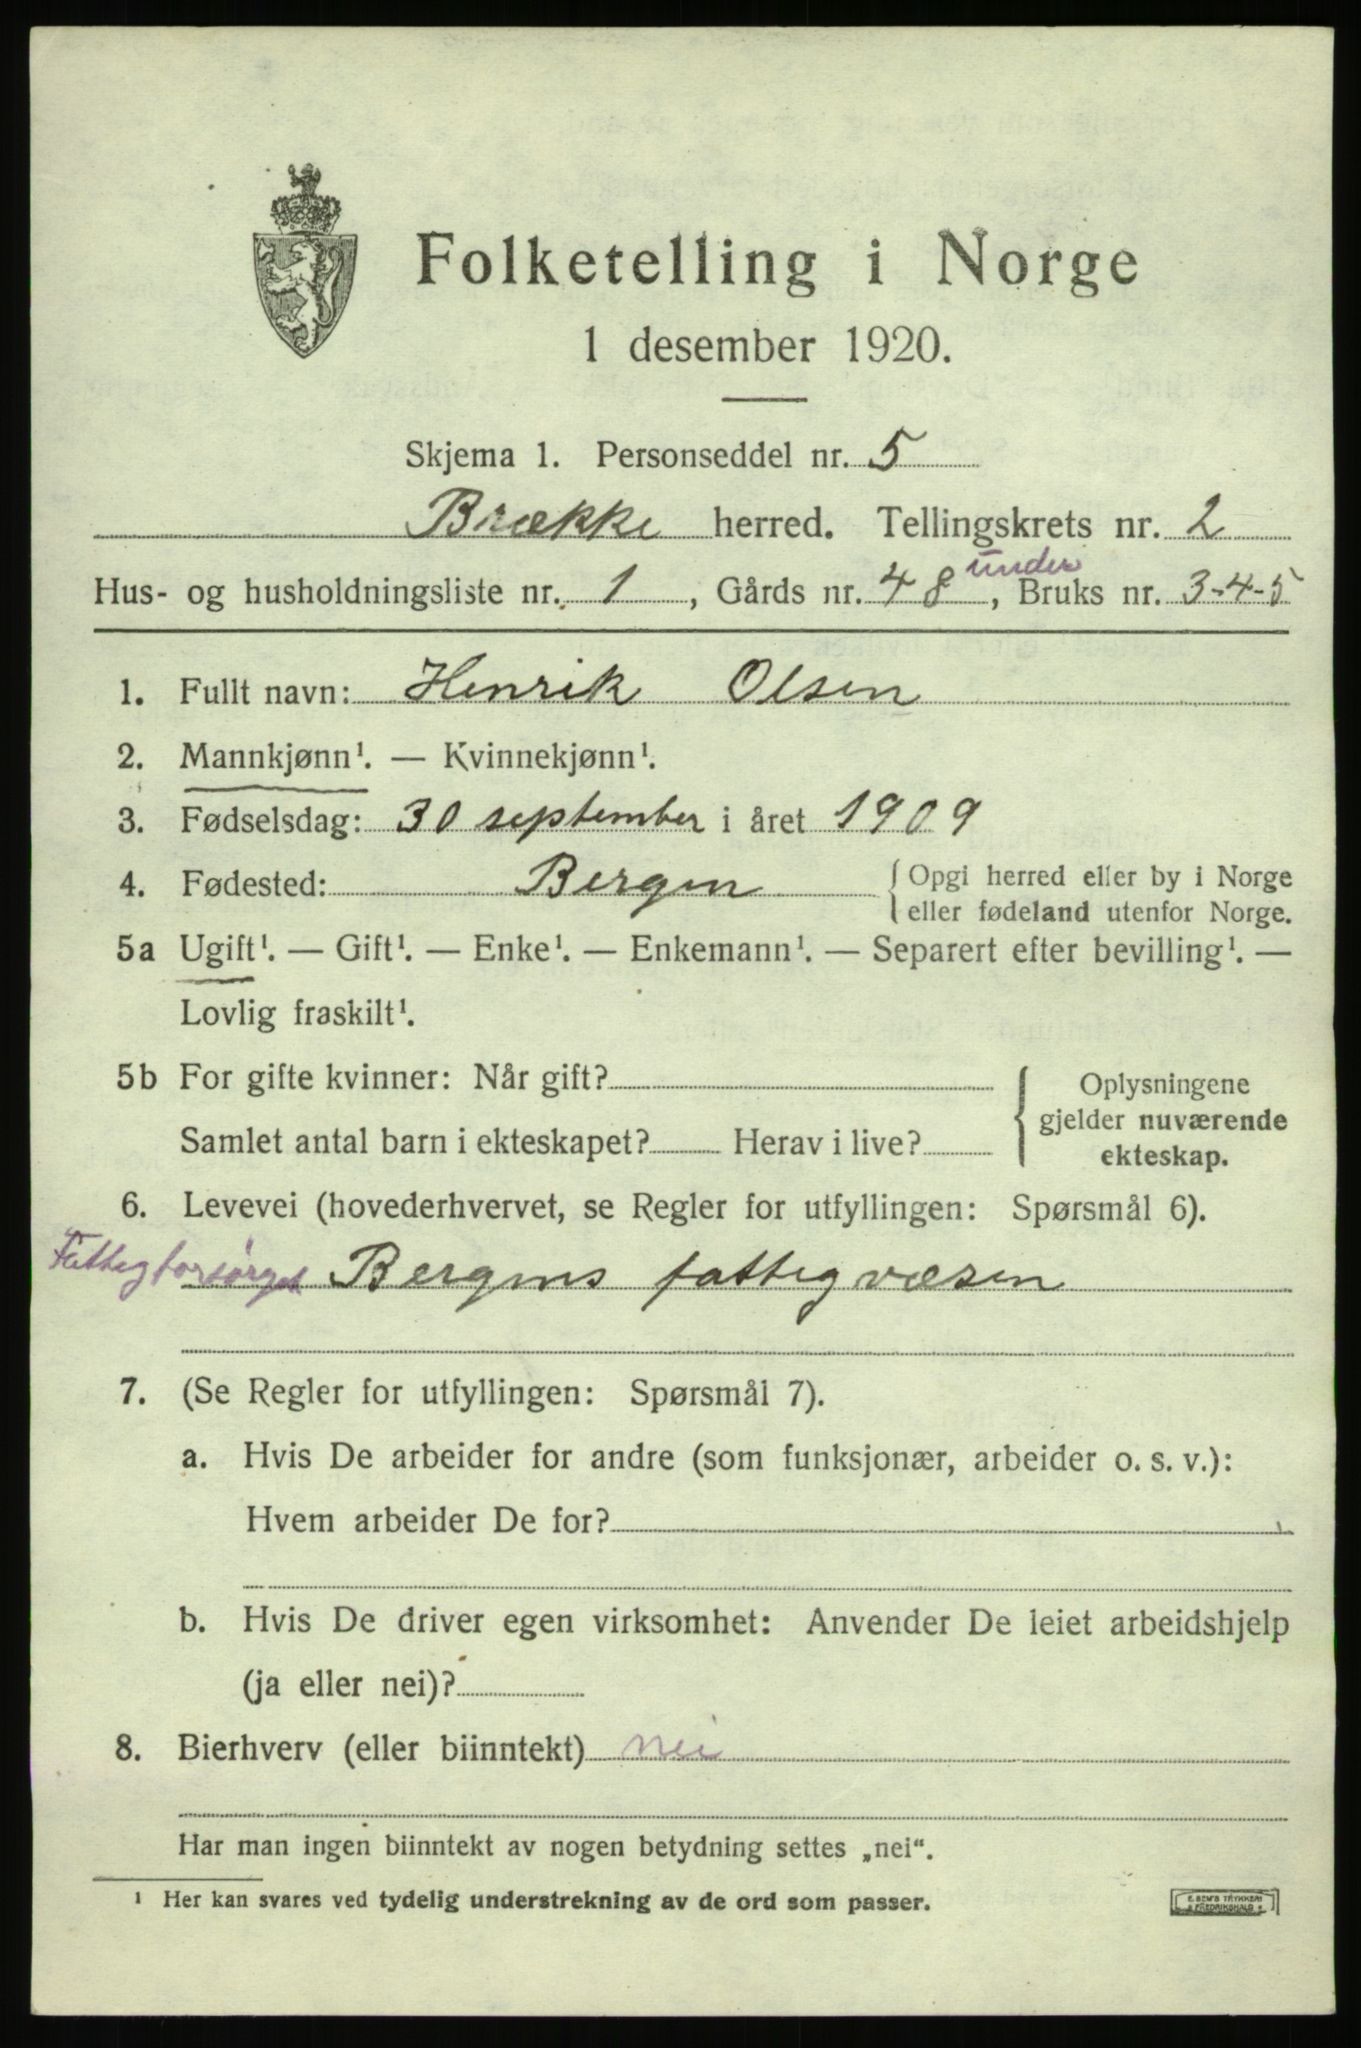 Folketelling i Norge
1 desember 1920.
Skjema 1. Personseddel nr. 5
Brække herred. Tellingskrets nr. 2
under
Hus- og husholdningsliste nr. 1, Gårds nr. 48, Bruks nr. 3-4-5
1. Fullt navn: Henrik Olsen
2. Mannkjønn¹. — Kvinnekjønn¹.
3. Fødselsdag: 30 september i året 1909
4. Fødested: Bergen {Opgi herred eller by i Norge
eller fødeland utenfor Norge.
5a Ugift¹. — Gift¹. — Enke¹. — Enkemann¹. — Separert efter bevilling¹. —
Lovlig fraskilt¹.
5b For gifte kvinner: Når gift?
Samlet antal barn i ekteskapet? Herav i live?
{Oplysningene
gjelder nuværende
ekteskap.
6. Levevei (hovederhvervet, se Regler for utfyllingen: Spørsmål 6).
Fattigforsørget Bergens fattigvæsen
7. (Se Regler for utfyllingen: Spørsmål 7).
a. Hvis De arbeider for andre (som funksjonær, arbeider o. s. v.):
Hvem arbeider De for?
b. Hvis De driver egen virksomhet: Anvender De leiet arbeidshjelp
(ja eller nei)?
8. Bierhverv (eller biinntekt) nei
Har man ingen biinntekt av nogen betydning settes „nei“.
¹ Her kan svares ved tydelig understrekning av de ord som passer.
E. SEM'S TRYKKERI
FREDRIKSHALD